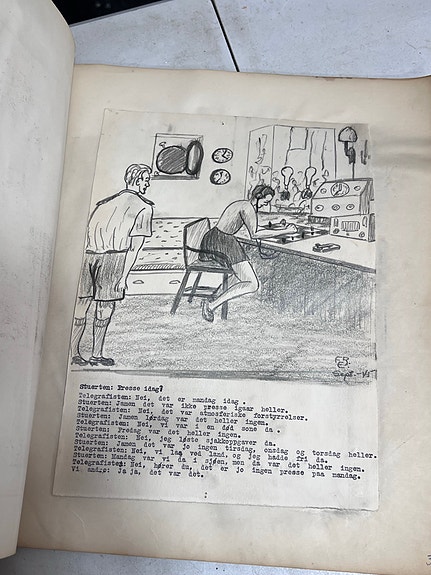 Sept.-47
Stuerten: Presse idag?
Telegrafisten: Nei, det er mandag idag.
Stuerten: Jamen det var ikke presse igaar heller.
Telegrafisten: Nei, det var atmosferiske forstyrrelser.
Stuerten: Jamen lørdag var det heller ingen.
Telegrafisten: Nei, vi var i en død sone da.
Stuerten: Fredag var det heller ingen.
Telegrafisten: Nei, jeg løste sjakkoppgaver da.
Stuerten: Jamen det var jo ingen tirsdag, onsdag og torsdag heller.
Telegrafisten: Nei, vi laa ved land, og jeg hadde fri da.
Stuerten: Mandag var vi da i sjøen, men da var det heller ingen.
Telegrafisten: Nei, hører du, det er jo ingen presse paa mandag.
Vi andre: Ja ja, det var det.